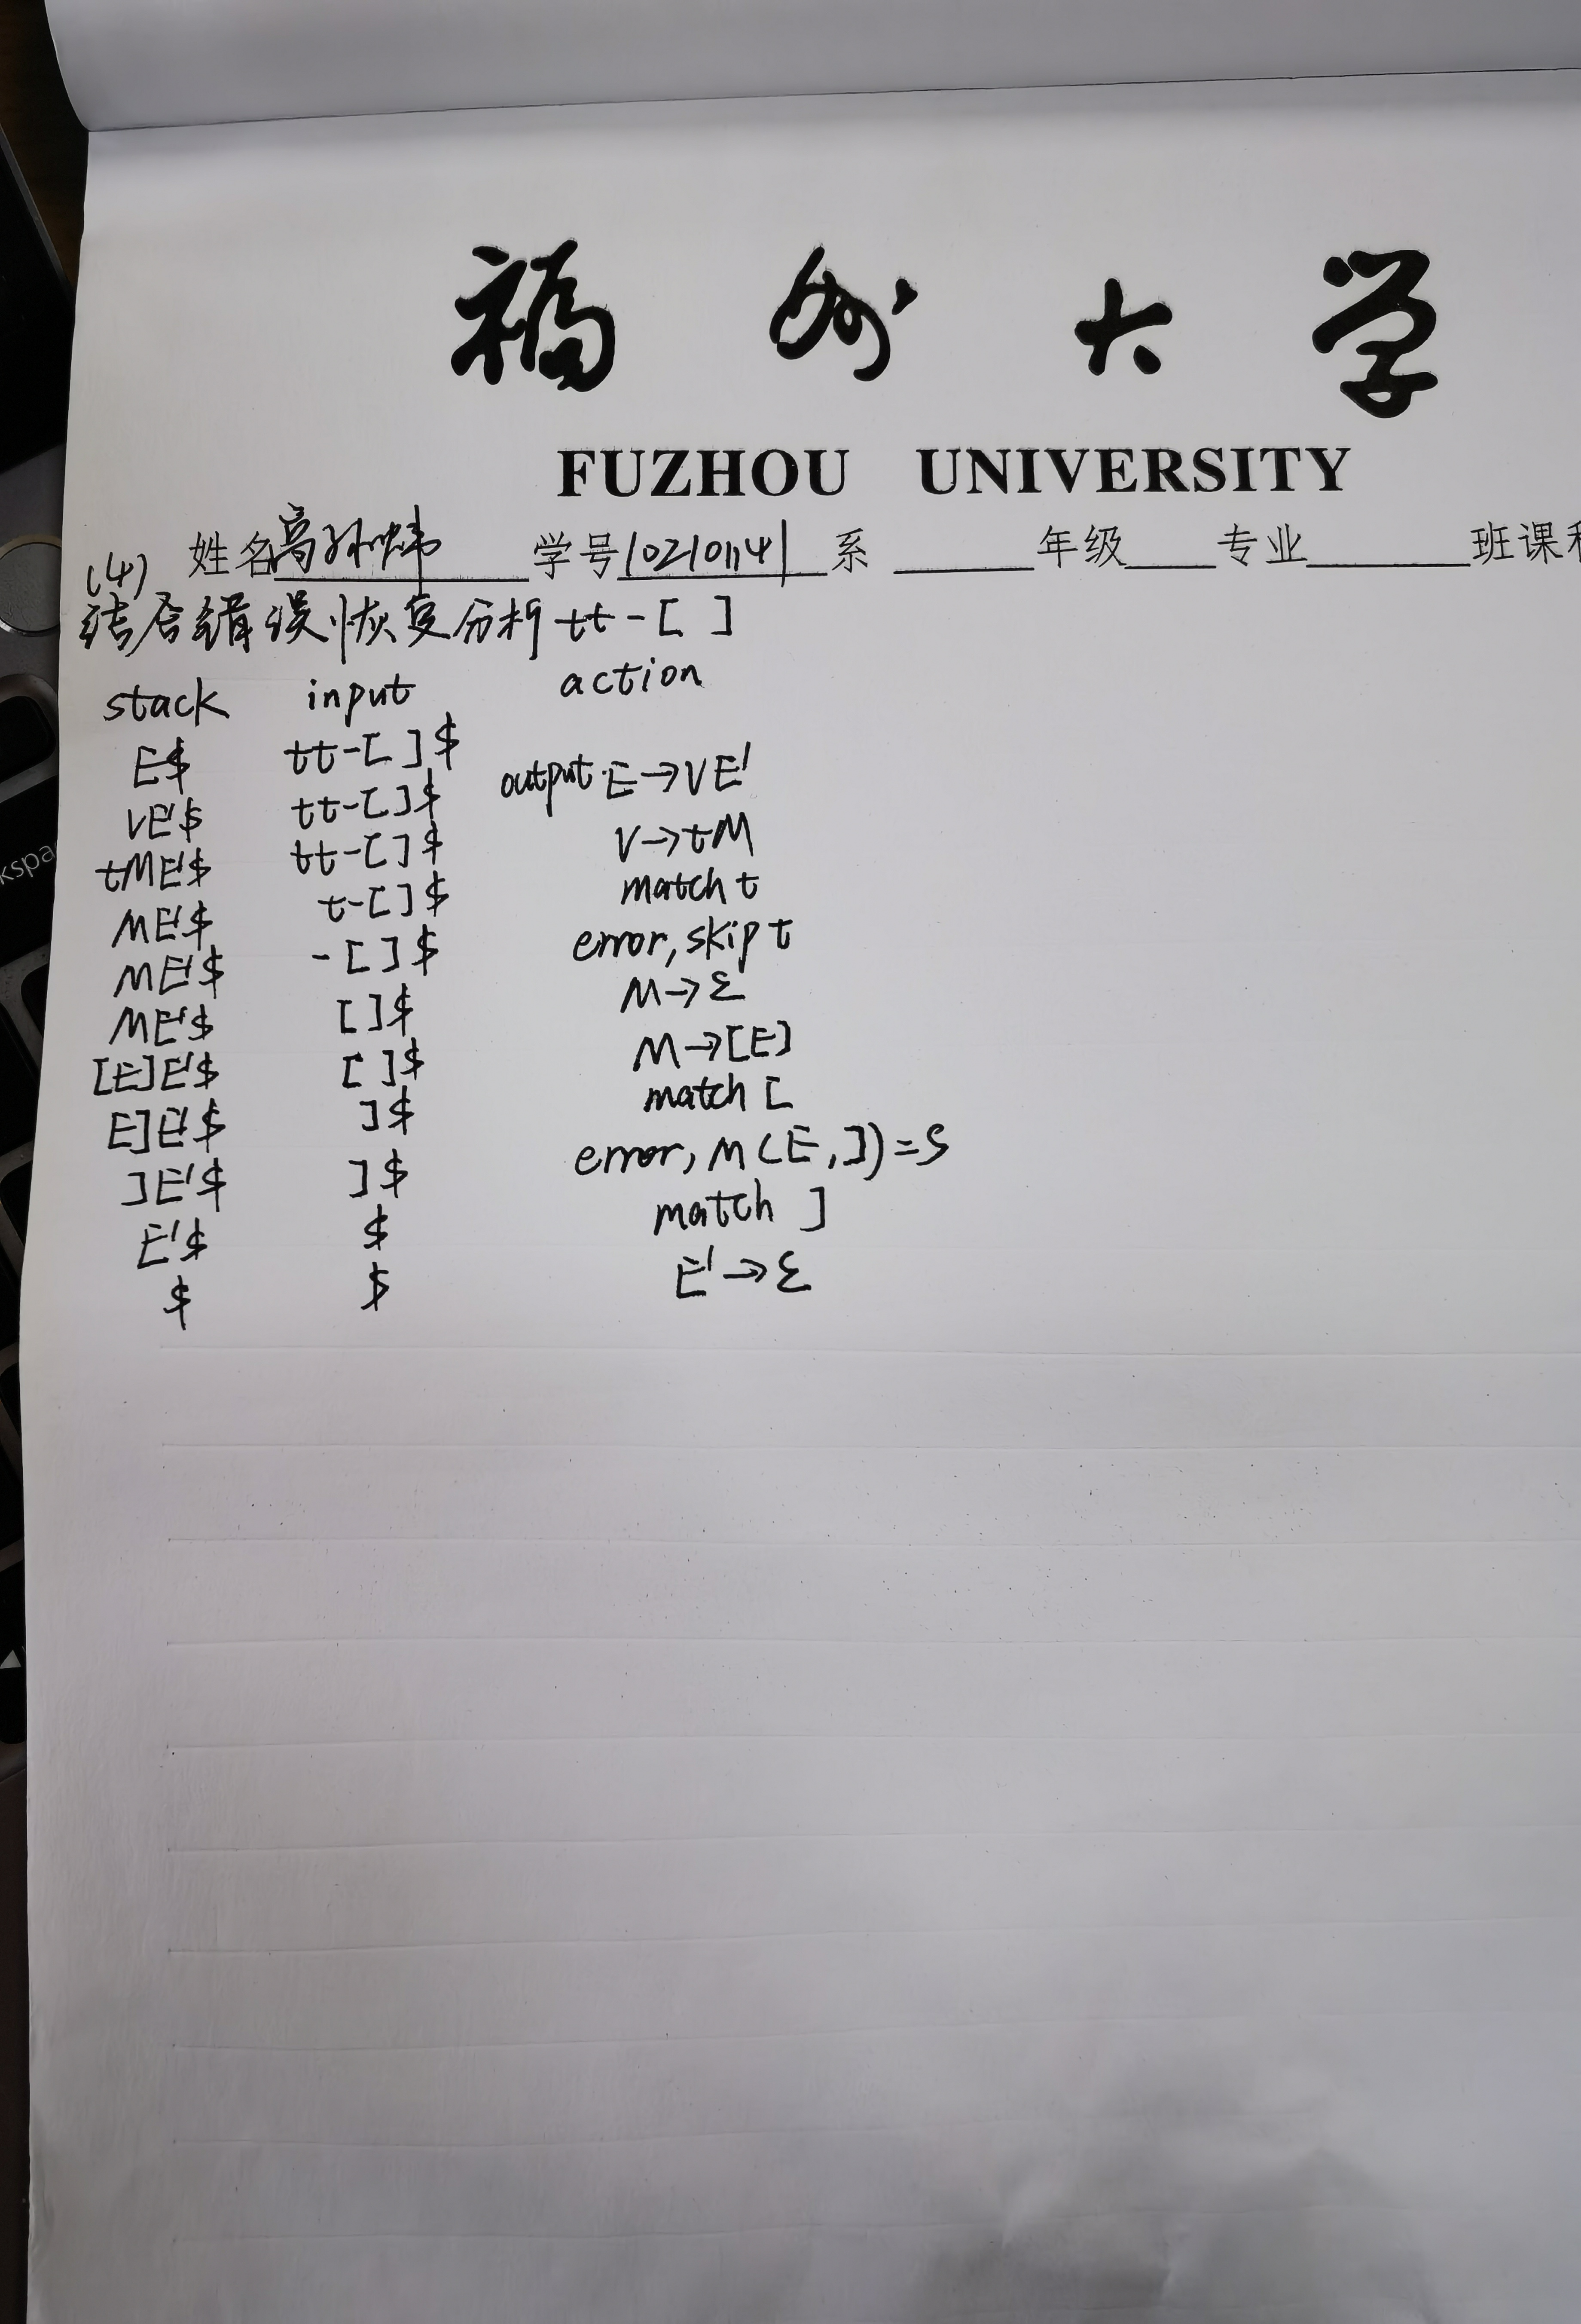 福州大学
FUZHOU UNIVERSITY
(4) 姓名 高孙炜 学号 102101141 系 年级 专业 班课程
结合错误恢复分析 tt-[ ]
stack input action
E$ tt-[ ]$ output E→VE'
VE'$ tt-[ ]$ V→tM
tME'$ tt-[ ]$ match t
ME'$ t-[ ]$ error, skip t
ME'$ -[ ]$ M→ε
ME'$ [ ]$ M→[E]
[E]E'$ [ ]$ match [
E]E'$ ]$ error, M(E, ])=S
]E'$ ]$ match ]
E'$ $ E'→ε
$ $
kspa